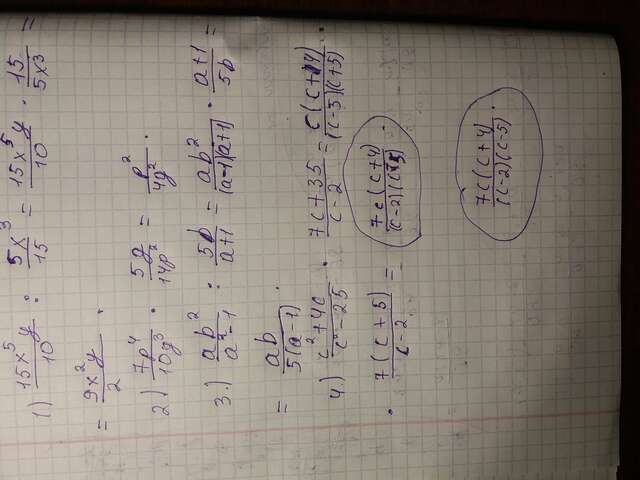 1) \frac{15x^5y}{10} : \frac{5x^3}{15} = \frac{15x^5y}{10} · \frac{15}{5x^3} =
= \frac{9x^2y}{2} .
2) \frac{7p^4}{10g^3} · \frac{5g}{14p^2} = \frac{p^2}{4g^2} .
3.) \frac{ab^2}{a^2-1} : \frac{5b}{a+1} = \frac{ab^2}{(a-1)(a+1)} · \frac{a+1}{5b} =
= \frac{ab}{5(a-1)} .
4.) \frac{c^2+4c}{c^2-25} · \frac{7c+35}{c-2} = \frac{c(c+4)}{(c-5)(c+5)} ·
· \frac{7(c+5)}{c-2} = \frac{7c(c+4)}{(c-2)(c-5)} =
\frac{7c(c+4)}{(c-2)(c-5)} .